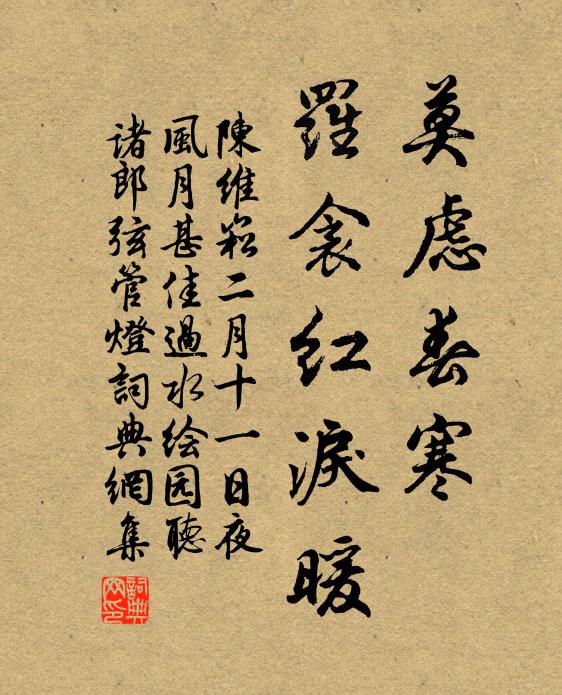 莫慮春寒
羅衾紅淚暖
陳維崧二月十一日夜
風月甚佳過水绘园聽
诸郎弦管燈詞典網集
詞典
网印